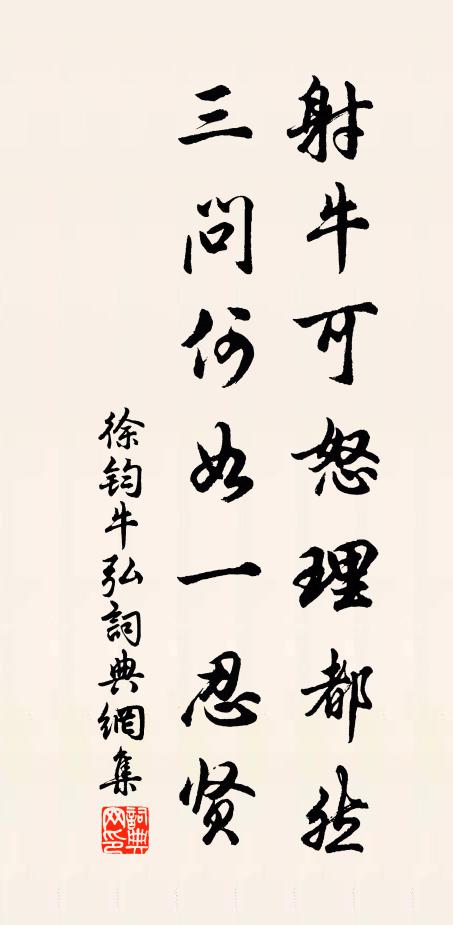 射牛可怒理都然
三问何如一忍贤
徐鈞牛弘詞典網集
詞典网印